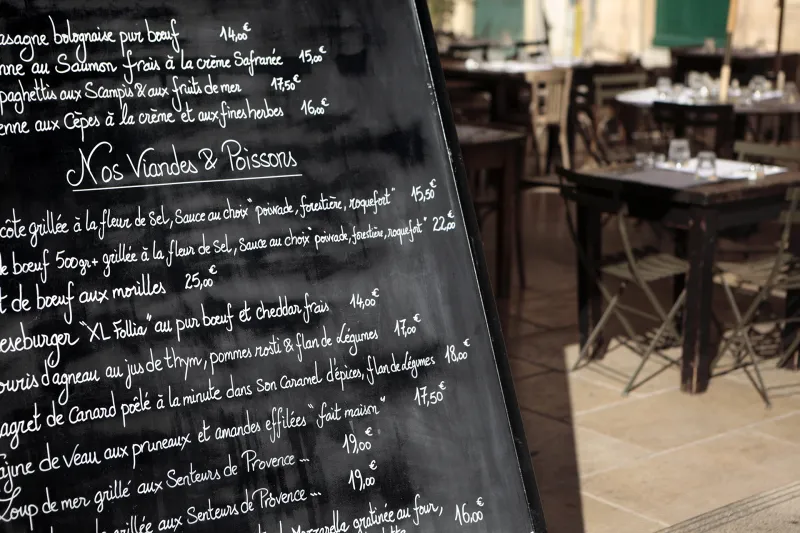 asagne bolognaise pur bœuf 14,00€
nne au Saumon frais à la crème Safranée 15,00€
paghettis aux Scampis & aux fruits de mer 17,50€
enne aux Cèpes à la crème et aux fines herbes 16,00€
Nos Viandes & Poissons
côte grillée à la fleur de Sel, Sauce au choix "poivade, forestière, roquefort" 15,50€
de bœuf 500gr+ grillée à la fleur de Sel, Sauce au choix "poivade, forestière, roquefort" 22,00€
t de bœuf aux morilles 25,00€
eseburger "XL Follia" au pur bœuf et cheddar frais 14,00€
ouris d'agneau au jus de thym, pommes rosti & flan de légumes 17,00€
agret de Canard pôêlé à la minute dans Son Caramel d'épices, flan de légumes 18,00€
ajine de veau aux pruneaux et amandes effilées "fait maison" 17,50€
Loup de mer grillé aux Senteurs de Provence ... 19,00€
grillée aux Senteurs de Provence ... 19,00€
Mozzarella gratinée au four, 16,00€